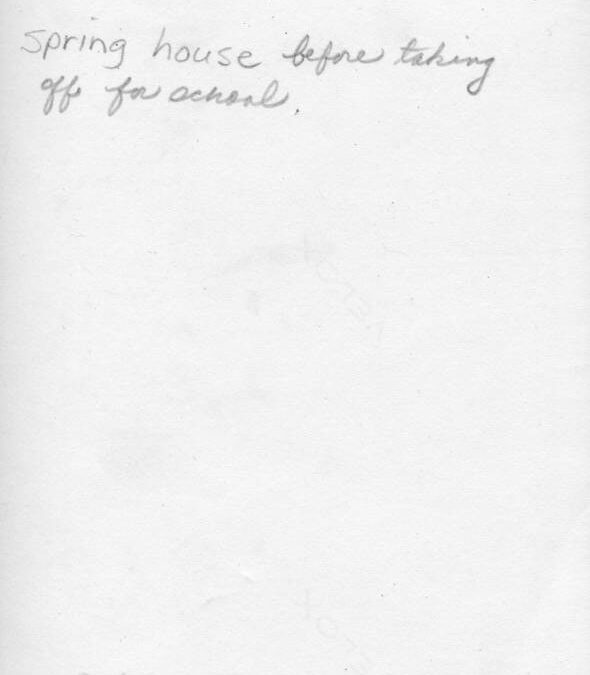 spring house before taking
off for school.